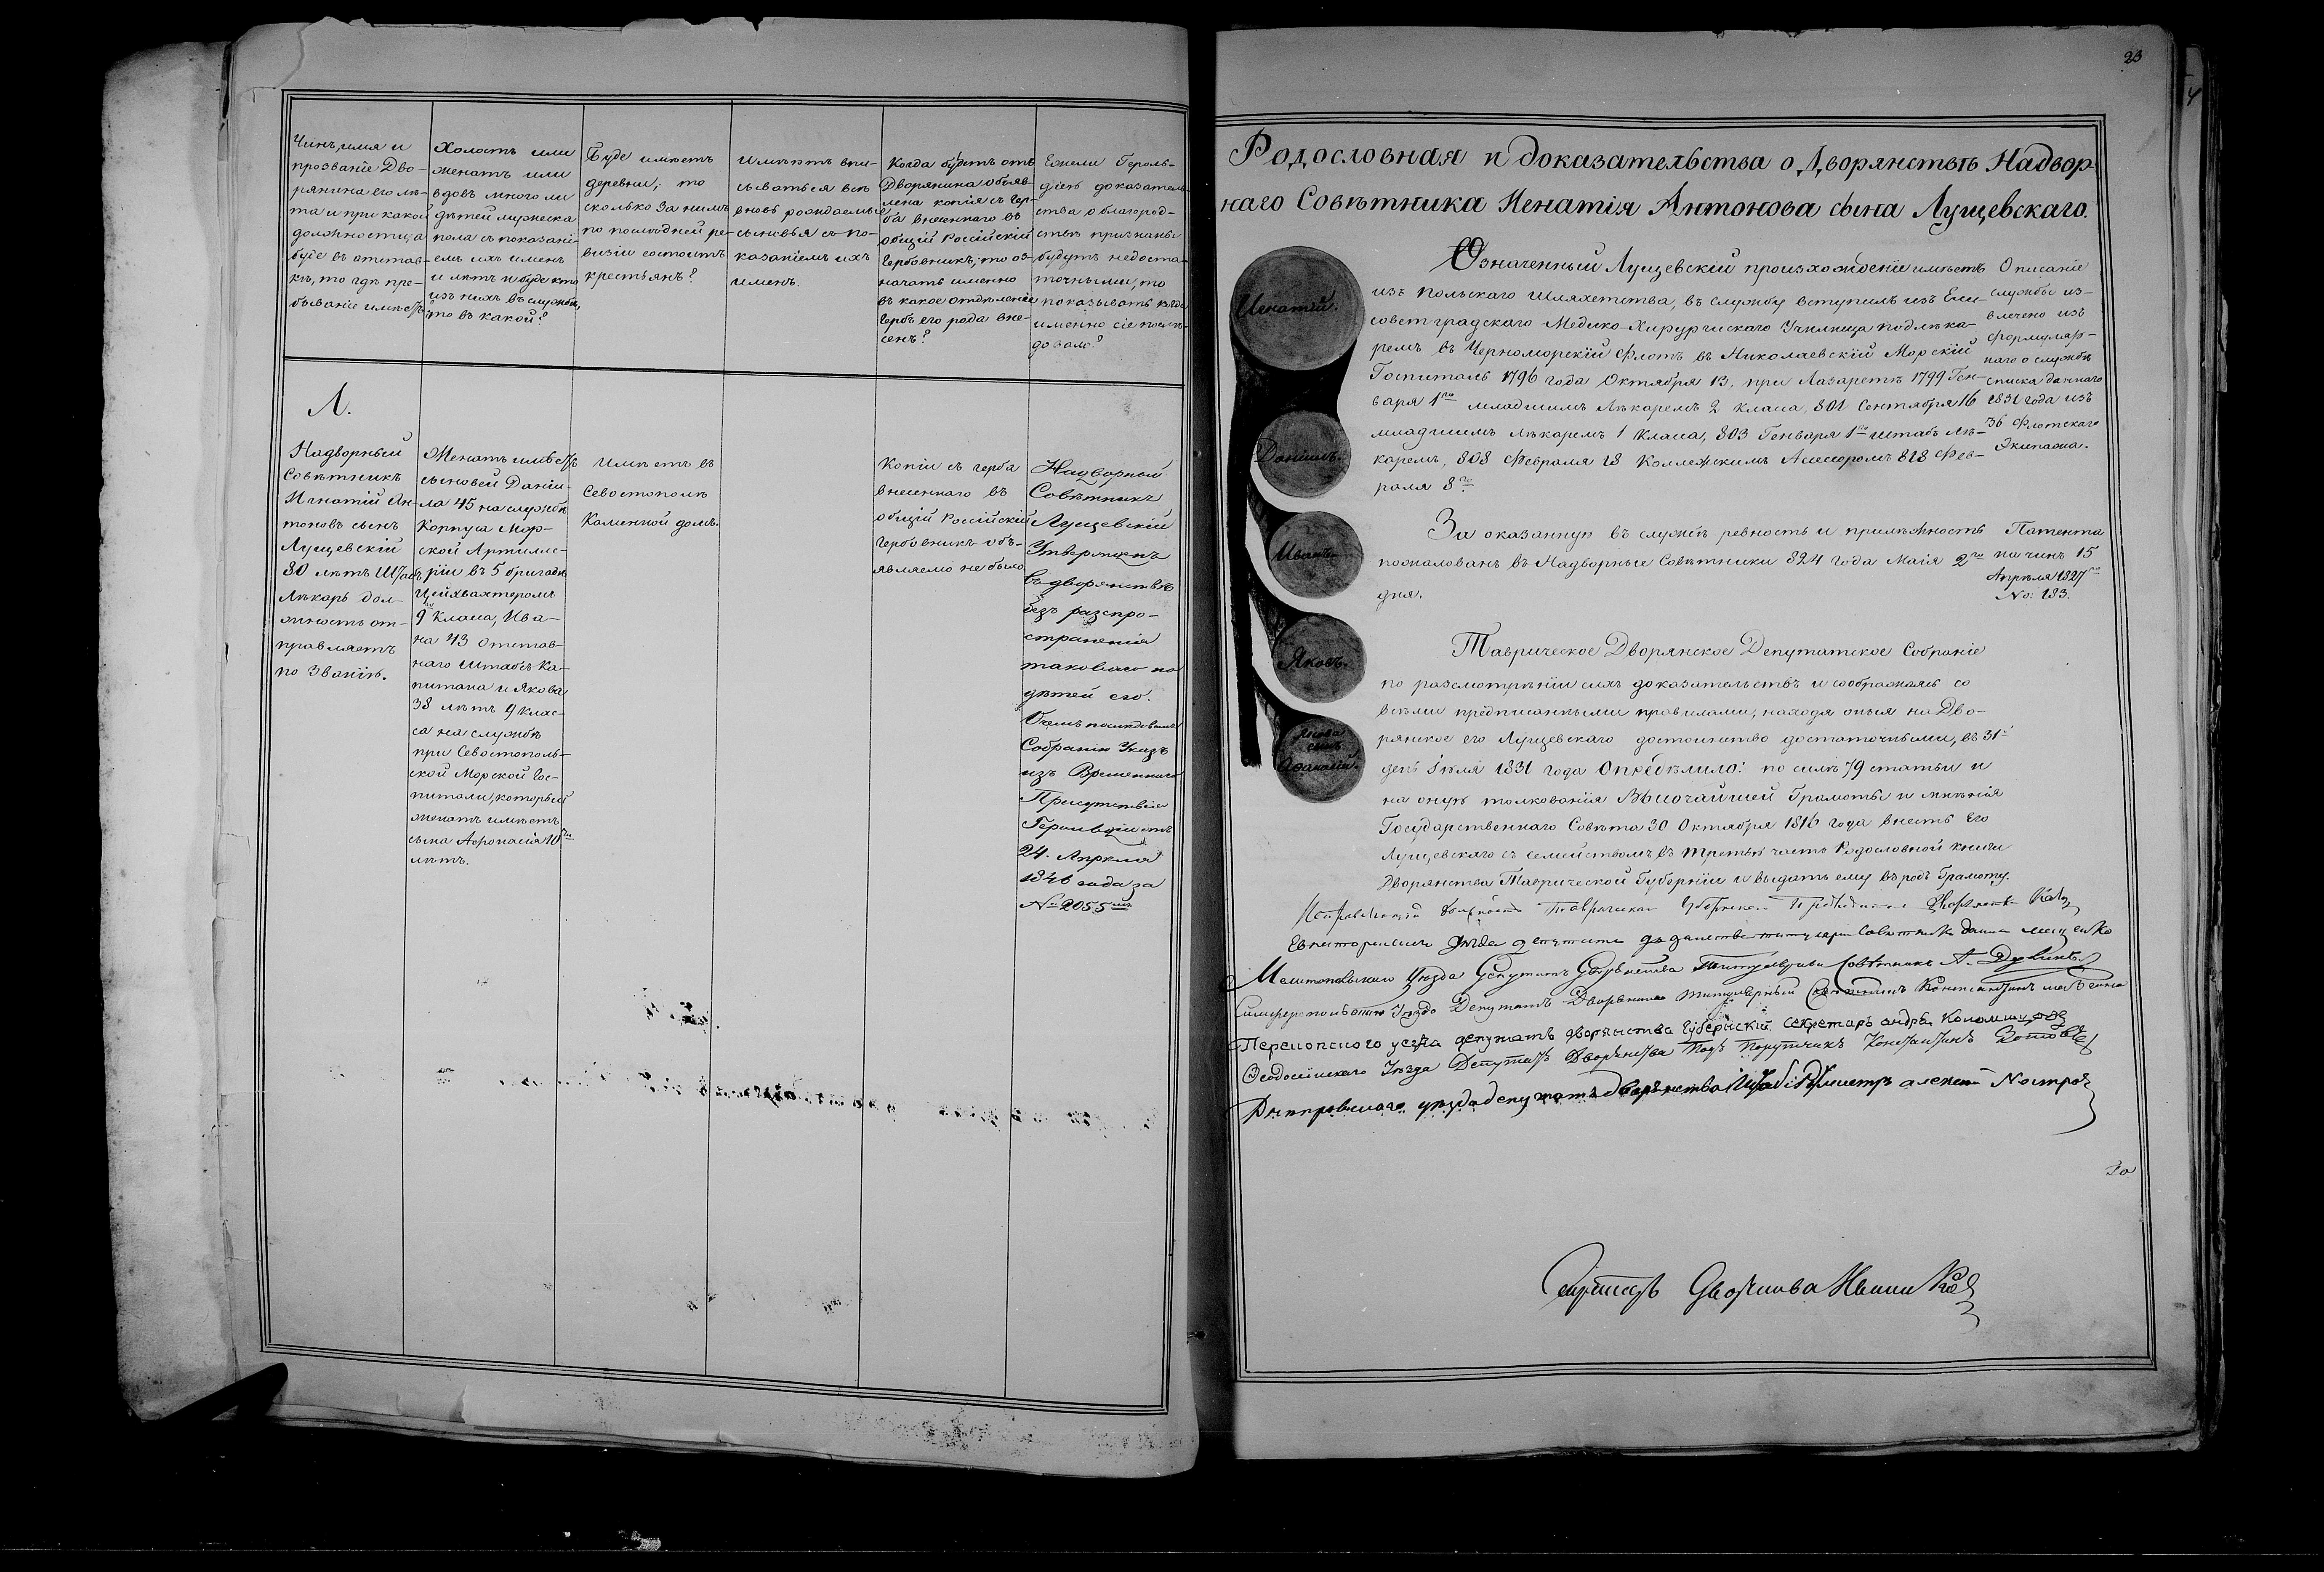 Чинъ, имя и
прозваніе Дво-
рянина его лѣ-
та и при какой
должности, а
буде въ отстав-
кѣ, то гдѣ пре-
бываніе имѣетъ
Холостъ или
женатъ или
вдовъ много ли
дѣтей мужеска
пола съ показані-
емъ ихъ именъ
и лѣтъ и буде кто
изъ нихъ въ службѣ,
то въ какой?
Буде имѣетъ
деревни, то
сколько за нимъ
по последней ре-
визіи состоитъ
крестьянъ?
Имѣютъ впи-
сываться всѣ
вновь рождаемые
сыновья съ по-
казаніемъ ихъ
именъ.
Когда будетъ отъ
Дворянина объяв-
лена копія съ гер-
ба внесеннаго въ
общій Россійскій
Гербовникъ, то оз-
начать именно
въ какое отдѣленіе
Гербъ его рода вне-
сенъ?
Ежели Героль-
діею доказатель-
ства о благород-
ствѣ признаны
будутъ недоста-
точными, то
показывать когда
именно сіе послѣ-
довало?
Л.
Надворный
Совѣтникъ
Игнатій Ан-
тоновъ сынъ
Лущевскій
80 лѣтъ Штабъ
Лѣкарь дол-
жность от-
правляетъ
по званію.
Женатъ имѣетъ
сыновей Даніи-
ла 45 на службѣ
Корпуса Мор-
ской Артилле-
ріи въ 5 бригадѣ
Цейхвахтеромъ
9 Класа, Ива-
на 43 отстав-
наго Штабсъ Ка-
питана и Якова
38 лѣтъ 9 Клас-
са на службѣ
при Севостополь-
ской Морской Гос-
питали, который
женатъ имѣетъ
сына Афонасія 10ти
лѣтъ.
Имѣетъ въ
Севостополѣ
Каменной домъ.
Копіи съ герба
внесеннаго въ
общій Россійскій
Гербовникъ объ-
являемо не было
Надворный
Совѣтникъ
Лущевскій
Утвержденъ
въ дворянствѣ
безъ распро-
страненія
таковаго на
дѣтей его.
О чемъ последовалъ
Собранію Указъ
изъ Временнаго
Присутствія
Герольдіи отъ
24. Апрѣля
1846 года за
№ 2055мъ
23
Родословная и доказательства о Дворянствѣ Надвор-
наго Совѣтника Игнатія Антонова сына Лущевскаго.
Игнатій.
Даніилъ.
Иванъ.
Яковъ.
Якова
сынъ
Афанасій.
Означенный Лущевскій произхожденіе имѣетъ
изъ Польскаго Шляхетства, въ службу вступилъ изъ Ели-
саветградскаго Медико-Хирургическаго Училища подлѣка-
ремъ въ Черноморскій флотъ въ Николаевскій Морскій
Госпиталь 1796 года Октября 13, при Лазаретѣ 1799 Ген-
варя 1го младшимъ Лѣкаремъ 2 класа, 801 Сентября 16
младшимъ лѣкаремъ 1 класа, 803 Генваря 1го штабъ Лѣ-
каремъ, 808 Февраля 18 Коллежскимъ Асессоромъ 818 Фев-
раля 8го
Описаніе
службы из-
влечено изъ
формуляр-
наго о службѣ
списка даннаго
1831 года изъ
36 Флотскаго
Экипажа.
За оказанную въ службѣ ревность и прилѣжность
пожалованъ въ Надворные Совѣтники 824 года Маія 2го
дня.
Патента
на чинъ 15
Апрѣля 1827го
No: 183.
Таврическое Дворянское Депутатское Собраніе
по разсмотрѣніи сихъ доказательствъ и соображаясь со
всѣми предписанными правилами, находя оныя на Дво-
рянское его Лущевскаго достоинство достаточными, въ 31й
день Іюля 1831 года Опредѣлило: по силѣ 79 статьи и
на оную толкованія Высочайшей Грамоты и мнѣнія
Государственнаго Совѣта 30 Октября 1816 года внесть его
Лущевскаго съ семействомъ въ третью часть Родословной книги
Дворянства Таврической Губерніи и выдать ему въ родъ Грамоту.
Исправляющій должность Таврическаго Губернскаго Предводителя Дворянства
Евпаторійскій уѣзда депутатъ дворянства титулярный Совѣтникъ
Мелитопольскаго Уѣзда Депутатъ Дворянства Титулярный Совѣтникъ А.
Симферопольскаго Уѣзда Депутатъ Дворянства титулярный Совѣтникъ Константинъ
Перекопского уезда депутатъ дворянства Губернскій секретарь андрей
Ѳеодосійскаго Уѣзда Депутатъ Дворянства Подъ Порутчикъ Константинъ Зотовъ
Днепровскаго уѣзда депутатъ дворянства Штабсъ Ротмистръ алексей
За
Секретарь Дворянства